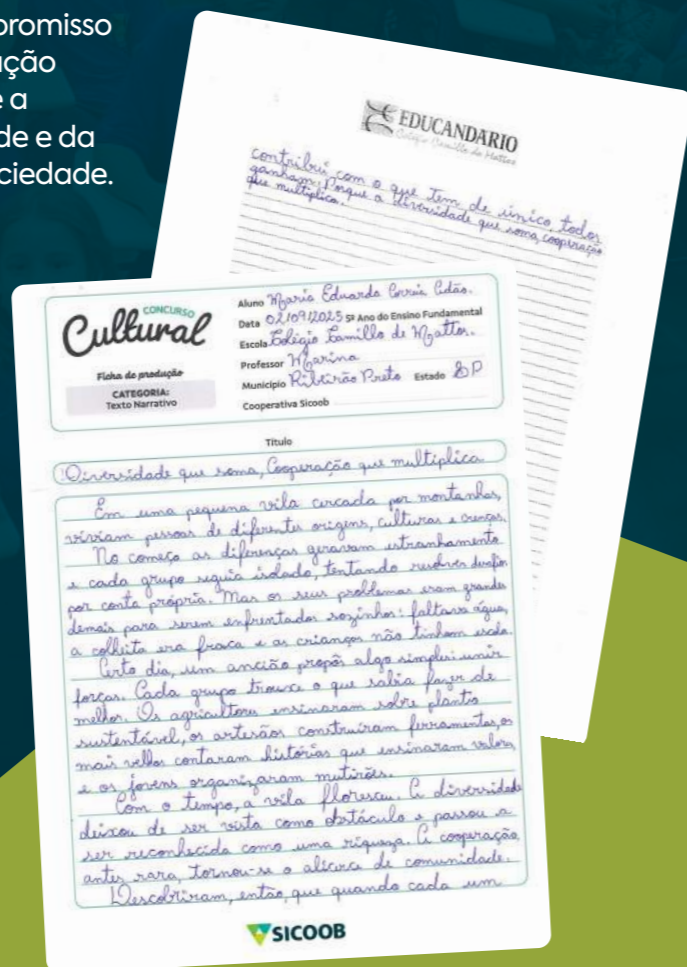 promisso
ção
e a
de e da
ciedade.
EDUCANDÁRIO
Colégio Camillo de Mattos
contribui com o que tem de único, todos
ganham. Porque a diversidade que soma, cooperação
que multiplica.
CONCURSO
Cultural
Ficha de produção
CATEGORIA:
Texto Narrativo
Aluno Maria Eduarda Correia
Data 02/09/2025 5º Ano do Ensino Fundamental
Escola Colégio Camillo de Mattos.
Professor Marina
Município Ribeirão Preto Estado SP
Cooperativa Sicoob
Título
Diversidade que soma, Cooperação que multiplica
Em uma pequena vila cercada por montanhas,
viviam pessoas de diferentes origens, culturas e crenças.
No começo as diferenças geravam estranhamento
e cada grupo seguia isolado, tentando resolver desafios
por conta própria. Mas os seus problemas eram grandes
demais para serem enfrentados sozinhos: faltava água,
a colheita era fraca e as crianças não tinham escola.
Certo dia, um ancião propôs algo simples: unir
forças. Cada grupo trouxe o que sabia fazer de
melhor. Os agricultores ensinaram sobre plantio
sustentável, os artesãos construíram ferramentas, os
mais velhos contaram histórias que ensinaram valores,
e os jovens organizaram mutirões.
Com o tempo, a vila floresceu. A diversidade
deixou de ser vista como obstáculo e passou a
ser reconhecida como uma riqueza. A cooperação,
antes rara, tornou-se o alicerce de comunidade.
Descobriram, então, que quando cada um
SICOOB